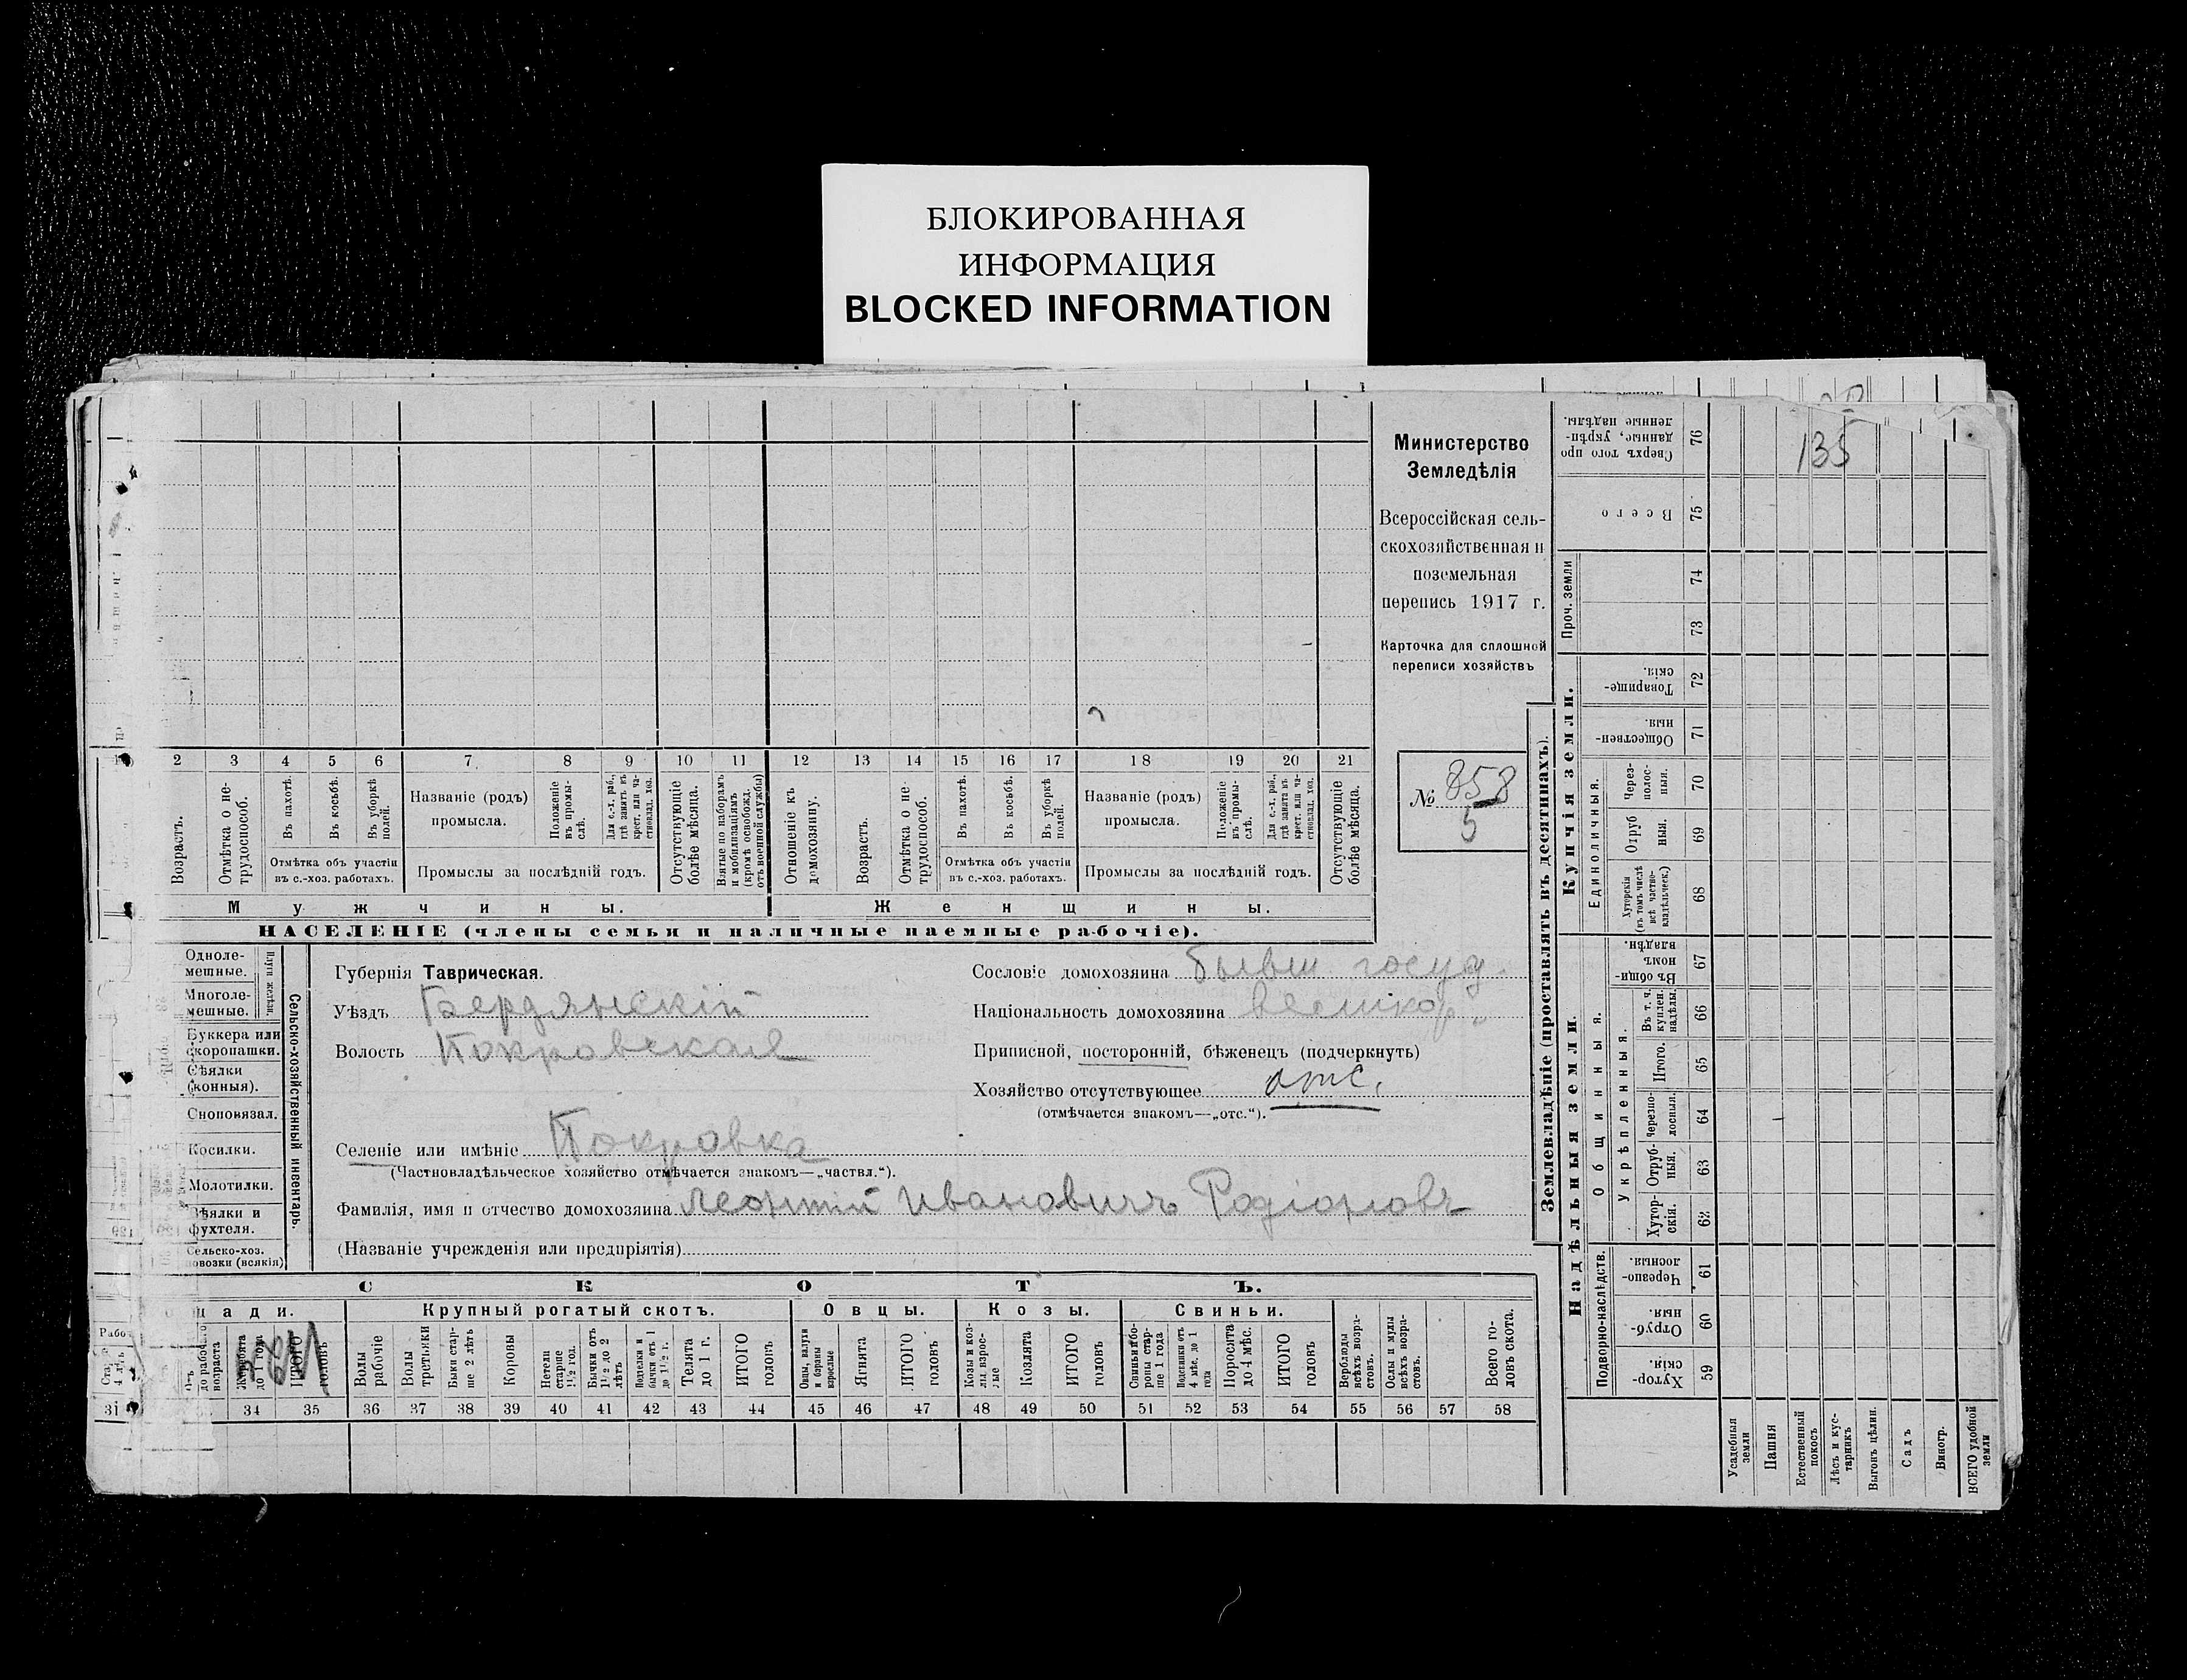 БЛОКИРОВАННАЯ
ИНФОРМАЦИЯ
BLOCKED INFORMATION
Министерство
Земледѣлія
Всероссійская сель-
скохозяйственная и
поземельная
перепись 1917 г.
Карточка для сплошной
переписи хозяйствъ
№ 858
5
135
2 3 4 5 6 7 8 9 10 11 12 13 14 15 16 17 18 19 20 21
Возрастъ.
Отмѣтка о не-
трудоспособ.
Въ пахотѣ.
Въ косьбѣ.
Въ уборкѣ
полей.
Отмѣтка объ участіи
въ с.-хоз. работахъ.
Названіе (родъ)
промысла.
Положеніе
въ промы-
слѣ.
Для с.-х. раб.,
гдѣ занятъ въ
крест. или ча-
стновлад. хоз.
Промыслы за послѣдній годъ.
Отсутствующіе
болѣе мѣсяца.
Взятые по наборамъ
и мобилизаціямъ
(кромѣ освобожд.
отъ военной службы)
Отношеніе къ
домохозяину.
Возрастъ.
Отмѣтка о не-
трудоспособ.
Въ пахотѣ.
Въ косьбѣ.
Въ уборкѣ
полей.
Отмѣтка объ участіи
въ с.-хоз. работахъ.
Названіе (родъ)
промысла.
Положеніе
въ промы-
слѣ.
Для с.-х. раб.,
гдѣ занята въ
крест. или ча-
стновлад. хоз.
Промыслы за послѣдній годъ.
Отсутствующіе
болѣе мѣсяца.
Мужчины.
Женщины.
НАСЕЛЕНІЕ (члены семьи и наличные наемные рабочіе).
Одноле-
мешные.
Многоле-
мешные.
Плуги желѣзн.
Буккера или
скоропашки.
Сѣялки
(конныя).
Сноповязал.
Косилки.
Молотилки.
Вѣялки и
фухтеля.
Сельско-хоз.
повозки (всякія)
Сельско-хозяйственный инвентарь.
Губернія Таврическая.
Уѣздъ Бердянскій
Волость Покровская
Селеніе или имѣніе Покровка
(Частновладѣльческое хозяйство отмѣчается знакомъ—„частвл.“).
Фамилія, имя и отчество домохозяина Леонтій Ивановичъ Родіоновъ
(Названіе учрежденія или предпріятія)
Сословіе домохозяина бывш. госуд.
Національность домохозяина великор.
Приписной, посторонній, бѣженецъ (подчеркнуть)
Хозяйство отсутствующее отс.
(отмѣчается знакомъ—„отс.“).
СКОТЪ.
Крупный рогатый скотъ.
Овцы.
Козы.
Свиньи.
Жеребята
до 1 года
ИТОГО
головъ
Волы
рабочіе
Волы
третьяки
Быки стар-
ше 2 лѣтъ
Коровы
Нетели
старше
1½ год.
Бычки отъ
1½ до 2
лѣтъ
Подтелки и
бычки отъ 1
до 1½ г.
Телята
до 1 г.
ИТОГО
головъ
Овцы, валухи
и бараны
взрослые
Ягнята
ИТОГО
головъ
Козы и коз-
лы взрос-
лые
Козлята
ИТОГО
головъ
Свиньи и бо-
ровы стар-
ше 1 года
Подсвинки отъ
4 мѣс. до 1
года
Поросята
до 4 мѣс.
ИТОГО
головъ
Верблюды
всѣхъ возра-
стовъ.
Ослы и мулы
всѣхъ возра-
стовъ.
Всего го-
ловъ скота.
31 34 35 36 37 38 39 40 41 42 43 44 45 46 47 48 49 50 51 52 53 54 55 56 57 58
Землевладѣніе (проставлять въ десятинахъ).
Купчія земли.
Надѣльныя земли.
Сверхъ того про-
данные, укрѣп-
ленные надѣлы.
76
Всего
75
Проч. земли
74
73
Товарище-
скія.
72
Обществен-
ныя.
71
Единоличныя.
Через-
полос-
ныя.
70
Отруб
ныя.
69
Хуторскія
(въ томъ числѣ
всѣ частно-
владѣльческ.)
68
Общинныя.
Въ общин-
номъ
владѣн.
67
Укрѣпленныя.
Въ т. ч.
куплен.
надѣлы.
66
Итого.
65
Черезпо-
лосныя.
64
Отруб-
ныя.
63
Хутор-
скія.
62
Подворно-наслѣдств.
Черезпо-
лосныя.
61
Отруб-
ныя.
60
Хутор-
скія.
59
Усадебныя
земли
Пашня
Естественный
покосъ
Лѣсъ и кус-
тарникъ
Выгонъ цѣлин.
Садъ
Виногр.
ВСЕГО удобной
земли